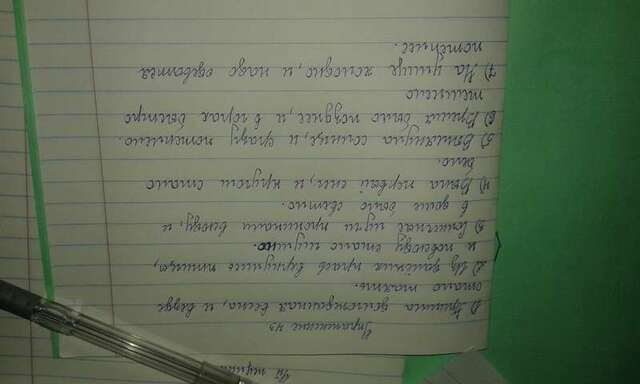 Упражнение 43
1) Пришла долгожданная весна, и везде
стало таять.
2) Из далёких краёв вернулись птицы,
и повсюду стало шумно.
3) Солнечные лучи проникали всюду, и
в доме было светло.
4) Выпа первый снег, и кругом стало
бело.
5) Выглянула солнце, и сразу потеплело.
6) Время было позднее, и в горах быстро
темнело
7) На улице холодно, и надо одеватся
потеплее.